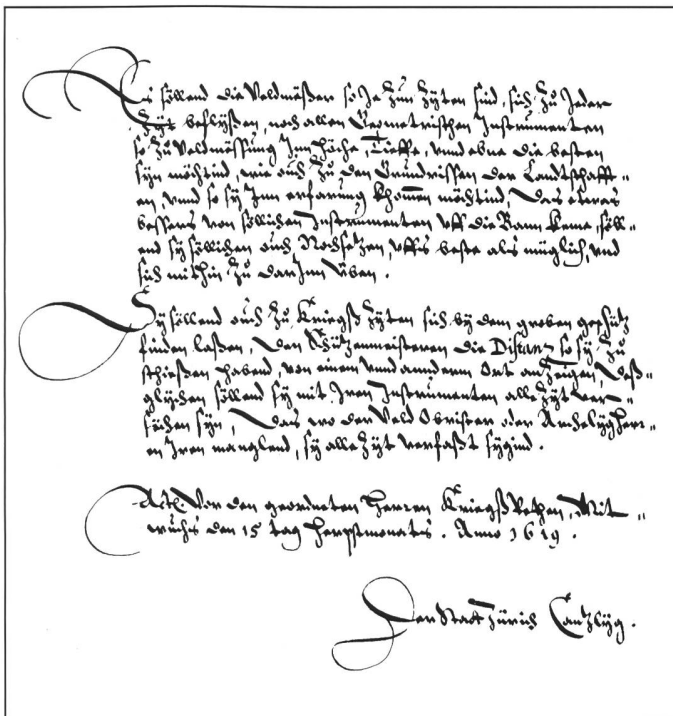 Es söllend die Veldmässer so je zun zyten sind, sich zu jeder
Zyt beflyssen, nach allen Geometrischen Instrumenten
so zu Veldmässung jnn höche, Tieffe, unnd ebne die besten
syn möchtind, wie ouch zu den Gründrissen der Landtschafft„
en, unnd so sy jnn erfarung khomen möchtind, das etwas
bessers von söllichen Instrumenten uff die Bann keme, söll„
end sy söllichen ouch Nachsetzen, uffs beste als müglich, und
sich mithin zu dar jnn üben.
Sy söllend ouch zu Kriegß Zyten sich by dem groben geschütz
finden laßen, den Schützenmeisteren die Distanz so sy zu
schießen habend, von einem unnd anderm Ort anzeigen, deß„
glychen söllend sy mit jren Instrumenten alle Zyt ver„
sächen syn, das wo der Veld Obrister oder Archelyg herr„
en jren manglend, sy alle Zyt verfaßt sygind.
Act. Vor den geordneten Herren Kriegß Rethen, Mit„
wuchs den 15 tag Herpstmonats. Anno 1619.
Der Statt Zürich Cantzlyg.